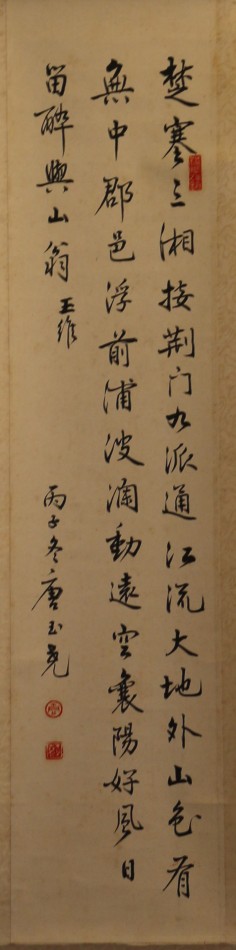 楚塞三湘接荆门九派通江流大地外山色有
無中郡邑浮前浦波瀾動遠空襄陽好風日
留醉與山翁 王維
丙子冬唐玉尧